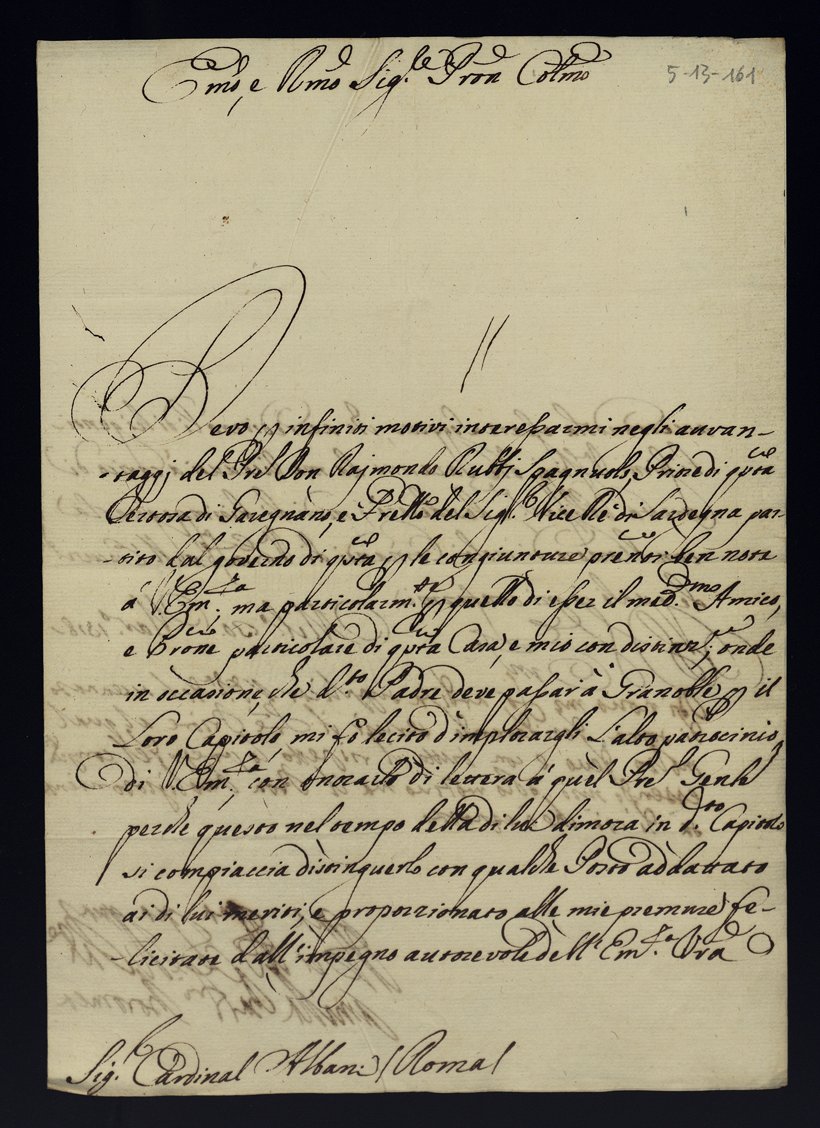 Emo, e Rmo Sig.re Pron Colmo
5-13-161
Devo per infiniti motivi interessarmi negli avvan-
-taggj del Pre Don Rajmondo Rubti Spagnuolo, Priore di qsta
Certosa di Garegnano, e Frello del Sig.r Vice Re di Sardegna par-
-tito dal governo di qsta per le congiunture prenti ben note
á V Em.za ma particolarm.te per quello di esser il med.mo Amico,
e Prone particolare di qsta Casa, e mio con distinz.e; onde
in occasione, che d.to Padre deve passar à Granoble per il
Loro Capitolo, mi fo lecito d'implorargli L'alto patrocinio
di V Em.za con onorarlo di lettera à quel Pre Genle
perche questo nel tempo della di lui dimora in d.to Capitolo
si compiaccia distinguerlo con qualche Posto addattato
ai di lui meriti, e proporzionato alle mie premure fe-
-licitate dall'impegno autorevole dell'Em.za Vra
Sig.r Cardinal Albani /Roma/